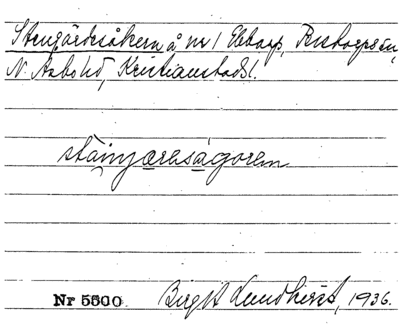 Stengärdesåkern å nr 1 Ebbarp, Perstorps sn,
N. Åsbohd, Kristianstads l.
stäinjæresågoren
Nr 5500 Birgit Lundkvist, 1936.